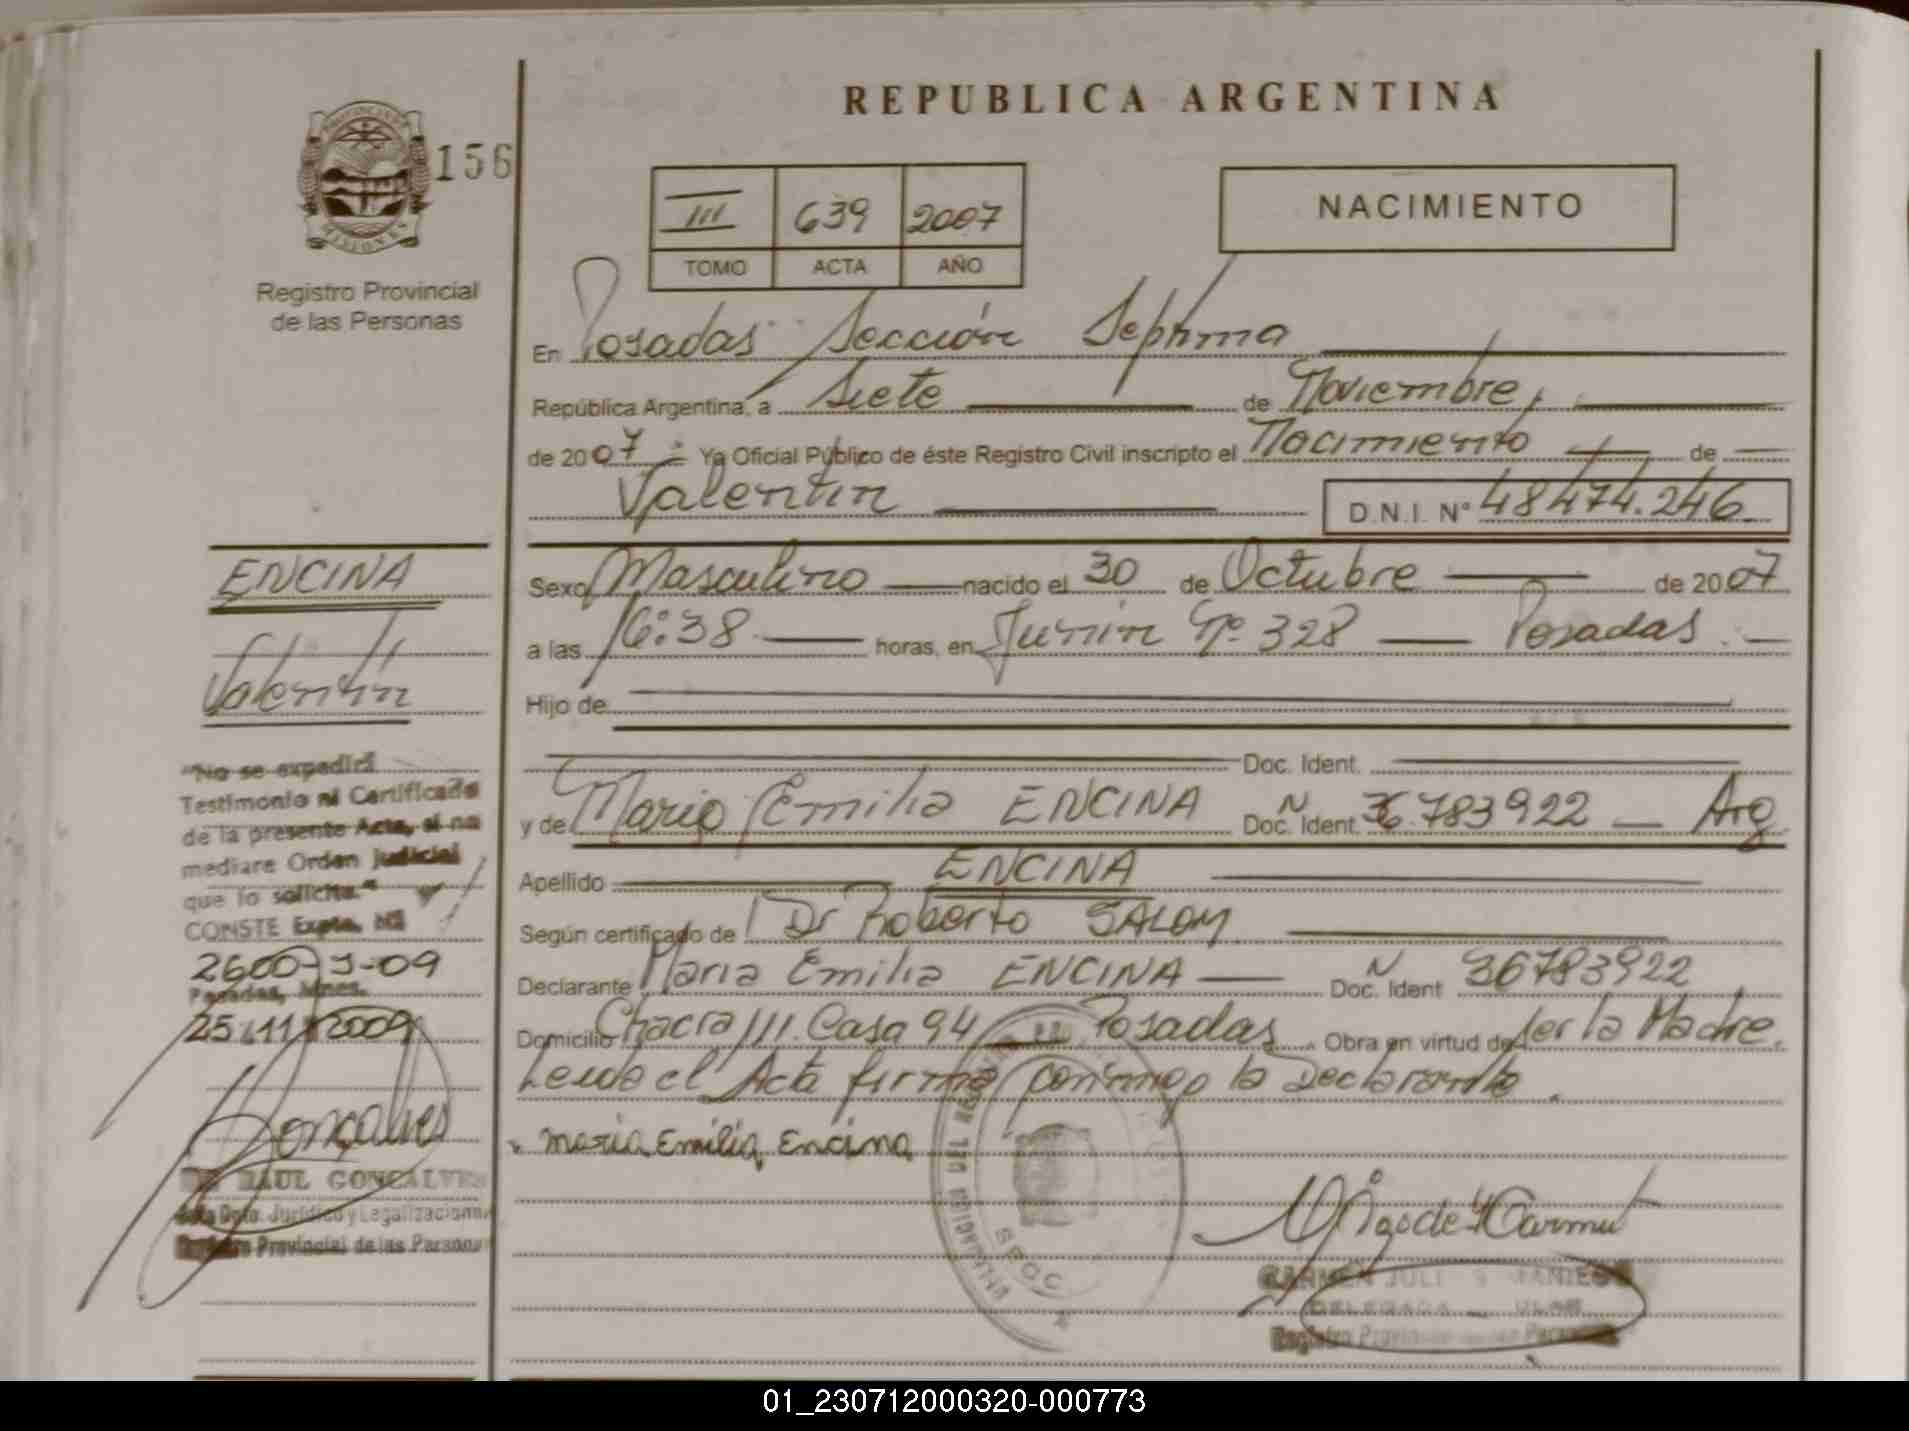 REPUBLICA ARGENTINA
PROVINCIA
MISIONES
156
Registro Provincial
de las Personas
III 639 2007
TOMO ACTA AÑO
NACIMIENTO
En Posadas Sección Séptima
República Argentina, a Siete de Noviembre,
de 2007 Yo Oficial Público de éste Registro Civil inscripto el Nacimiento de
Valentín
D.N.I. N° 48474.246
Sexo Masculino nacido el 30 de Octubre de 2007
a las 16:38 horas, en Junin N° 328 Posadas
Hijo de
Doc. Ident.
y de Maria Emilia ENCINA Doc. Ident. N 36.783922 Arg
Apellido ENCINA
Según certificado de Dr Roberto SALOM
Declarante Maria Emilia ENCINA Doc. Ident N 36783922
Domicilio Chacra 111. Casa 94 Posadas Obra en virtud de ser la Madre.
Leida el Acta firma conmigo la Declarante.
Maria Emilia Encina
ENCINA
Valentín
"No se expedirá
Testimonio ni Certificado
de la presente Acta, si no
mediare Orden Judicial
que lo solicite."
CONSTE Expte. Nº
2600-J-09
Posadas, Mnes.
25 11 2009
Gonçalves
RAUL GONCALVES
Dpto. Jurídico y Legalizaciones
Registro Provincial de las Personas
CARMEN
DELEGADA
Registro Provincial
01_230712000320-000773